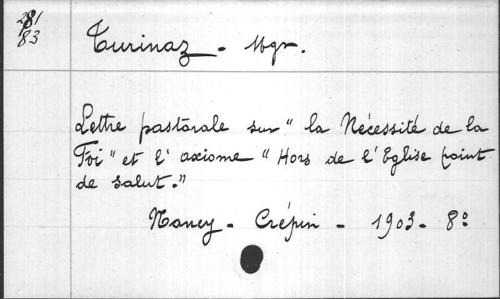 281
83
Turinaz - Mgr.
Lettre pastorale sur " la Nécessité de la
Foi " et l' axiome " Hors de l'Eglise point
de salut."
Nancy - Crépin - 1903 - 8º